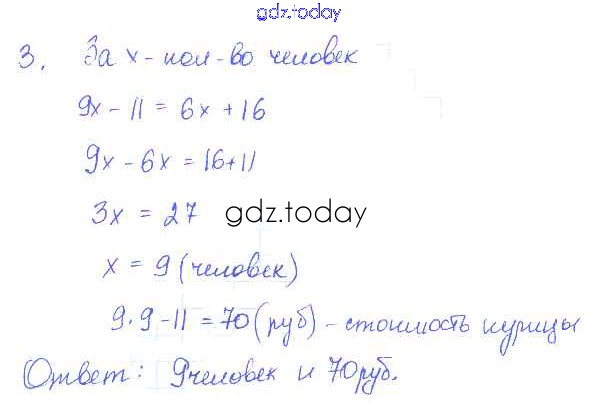 gdz.today
3. За х - кол-во человек
9х - 11 = 6х + 16
9х - 6х = 16+11
3х = 27
gdz.today
х = 9 (человек)
9·9-11 = 70 (руб) - стоимость курицы
Ответ: 9человек и 70руб.